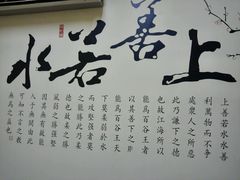 上善若水
上善若水水善
利萬物而不爭
處衆人之所惡
此乃謙下之德
也故江海所以
能為百谷王者
以其善下之則
能為百谷王天
下莫柔弱於水
而攻堅强者莫
之能勝此乃柔
德也故柔之勝
剛弱之勝强堅
因其無有故能
入于無間由此
可知不言之教
無為之益也